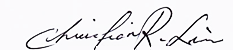 Christian R. Lin